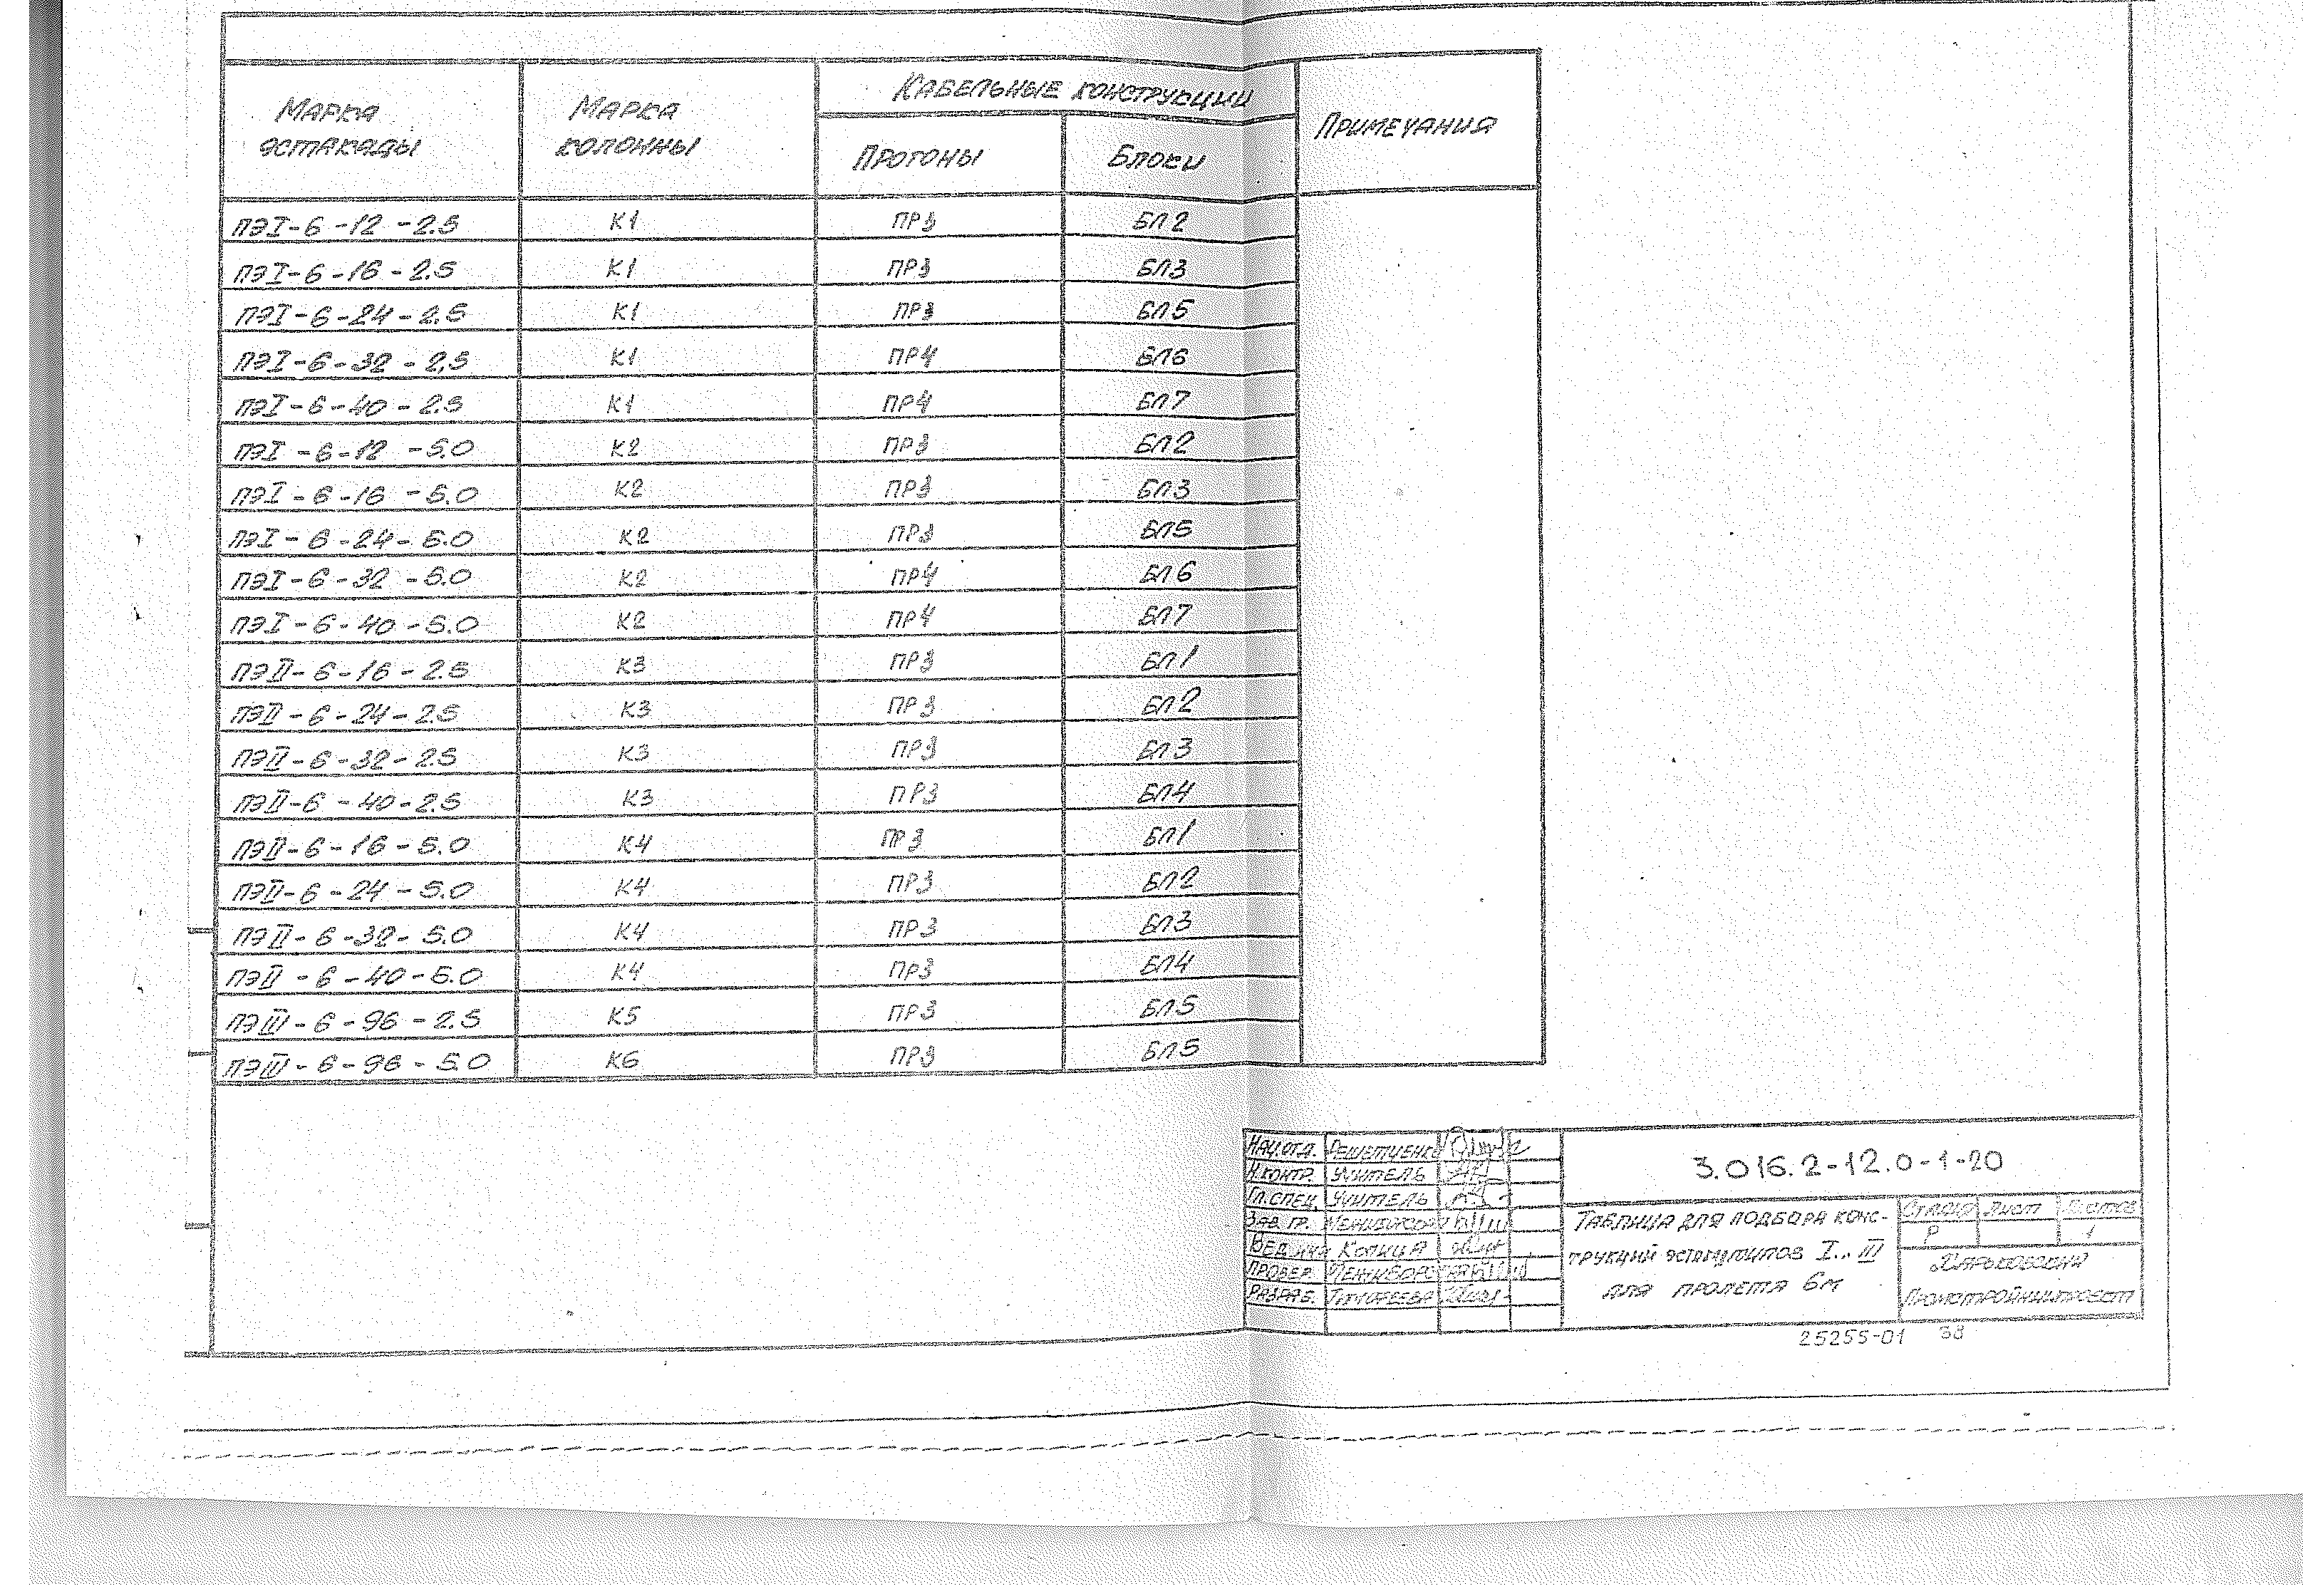 Марка эстакады Марка колонны Кабельные конструкции Примечания
Прогоны Блоки
ПЭI-6-12-2.5 К1 ПР3 БЛ2
ПЭI-6-16-2.5 К1 ПР3 БЛ3
ПЭI-6-24-2.5 К1 ПР3 БЛ5
ПЭI-6-32-2,5 К1 ПР4 БЛ6
ПЭI-6-40-2.5 К1 ПР4 БЛ7
ПЭI-6-12-5.0 К2 ПР3 БЛ2
ПЭI-6-16-5.0 К2 ПР3 БЛ3
ПЭI-6-24-5.0 К2 ПР3 БЛ5
ПЭI-6-32-5.0 К2 ПР4 БЛ6
ПЭI-6-40-5.0 К2 ПР4 БЛ7
ПЭII-6-16-2.5 К3 ПР3 БЛ1
ПЭII-6-24-2.5 К3 ПР3 БЛ2
ПЭII-6-32-2.5 К3 ПР3 БЛ3
ПЭII-6-40-2.5 К3 ПР3 БЛ4
ПЭII-6-16-5.0 К4 ПР3 БЛ1
ПЭII-6-24-5.0 К4 ПР3 БЛ2
ПЭII-6-32-5.0 К4 ПР3 БЛ3
ПЭII-6-40-5.0 К4 ПР3 БЛ4
ПЭIII-6-96-2.5 К5 ПР3 БЛ5
ПЭIII-6-96-5.0 К6 ПР3 БЛ5
Нач.отд. Решетченко
Н.контр. Учитель
Гл.спец. Учитель
Зав. гр.
Вед.инж Копица
Провер.
Разраб. Тимофеева
3.016.2-12.0-1-20
Таблица для подбора конс-
трукций эстакад типов I...III
для пролета 6м
Стадия Лист Листов
Р 1
Харьковский
Промстройниипроект
25255-01 38